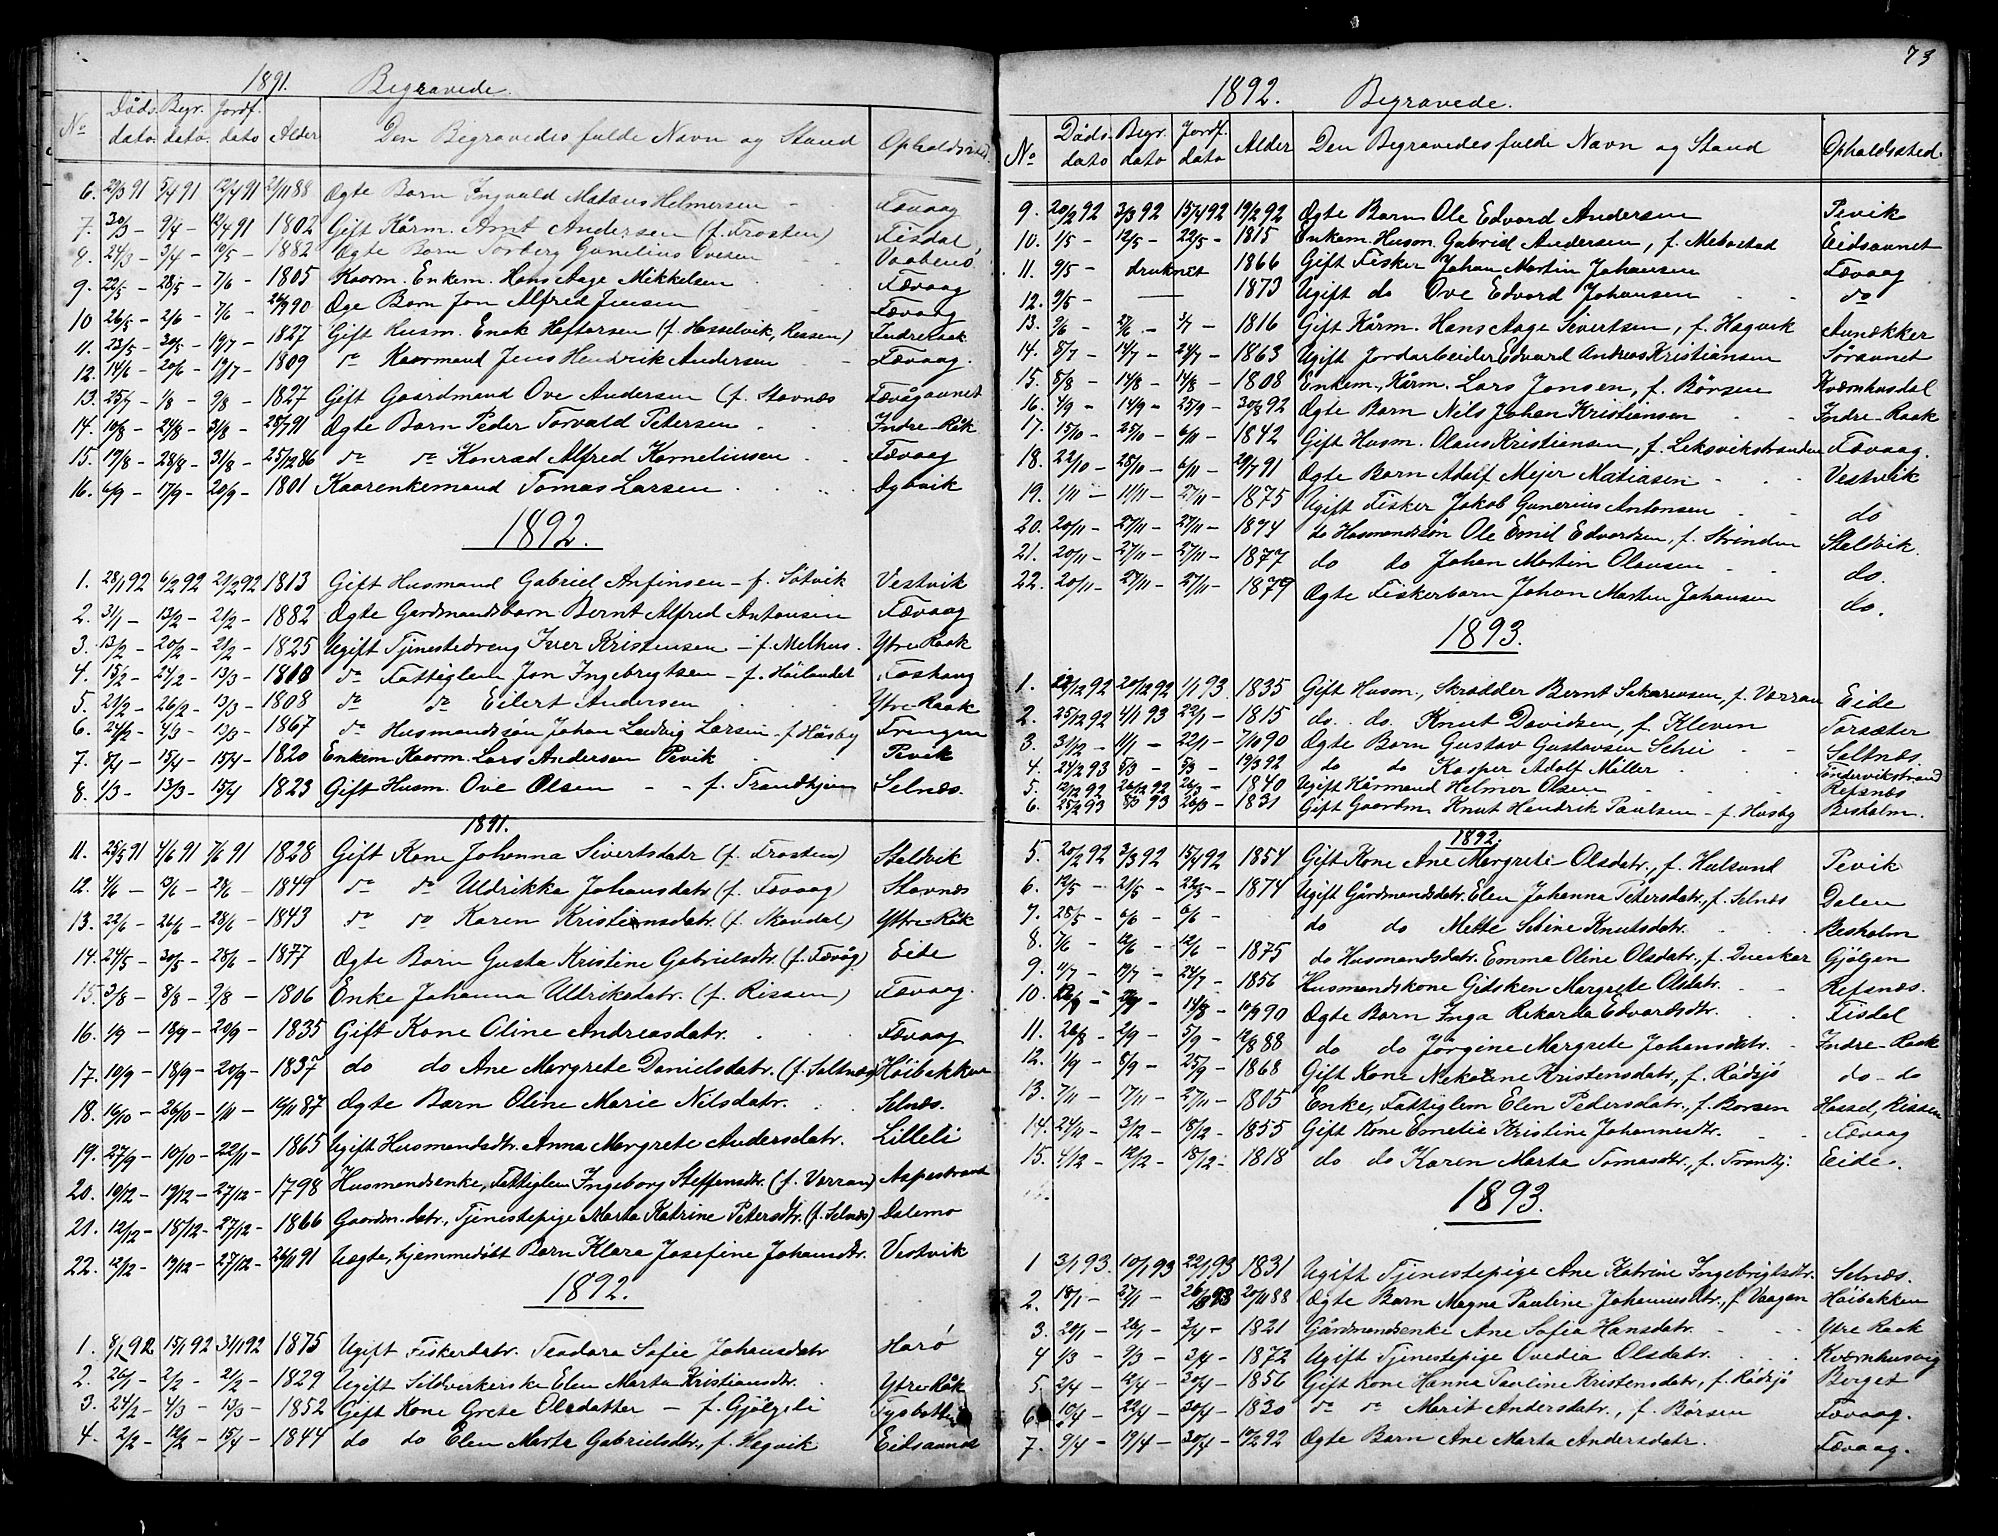 1891. Begravede.
No Døds- dato. Begr. dato. Jordf. dato Alder Den Begravedes fulde Navn og Stand Opholdssted.
6. 29/3 91 5/4 91 12/4 91 21/11 88 Ægte Barn Ingvald Matæus Helmersen Fævaag
7. 30/3 - 9/4 - 12/4 91 1802 Gift Kårm. Arnt Andersen (f. Frosten) Fisdal
8. 24/3 - 3/4 - 10/5 - 1882 Ægte Barn Torberg Gunelius Ovesen
9. 22/5 - 28/5 - 7/6 - 1805 Kaarm. Enkem. Hans Aage Mikkelsen Fævaag
10 26/5 - 2/6 - 7/6 - 24/9 90 Æge Barn Jon Alfred Jensen Fævaag
11. 23/5 - 30/5 - 19/7 - 1827 Gift Husm. Enok Heftorsen (f. Hasselvik, Rissen) Indreraak
12. 14/6 - 20/6 - 19/7 - 1809 do Kaarmand Jens Hendrik Andersen Fævaag.
13. 25/7 - 1/8 - 9/8 - 1827 Gift Gaardmand Ove Andersen (f. Stavnæs Fævågavnet
14. 10/8 - 24/8 - 31/8 - 28/7 91 Ægte Barn Peder Torvald Petersen Indre-Råk
15. 19/8 - 28/8 - 31/8 - 25/12 86 do do Konrad Alfred Korneliusen Fævaag
16. 6/9 - 17/9 - 20/9 - 1801 Kaarenkemand Tomas Larsen Dybvik
1892.
1. 28/1 92 6/2 92 21/2 92 1813 Gift Husmand Gabriel Anfinsen - f. Sötvik Vestvik
2. 31/1 - 13/2 - 21/2 - 1882 Ægte Gardmandsbarn Bernt Alfred Antonsen Fævaag
3. 13/2 - 20/2 - 21/2 - 1825 Ugift Tjenestedreng Iver Kristensen - f. Melhus. Ytre Raak
4. 15/2 - 24/2 - 13/3 - 1808 do Fattiglem Jon Ingebrigtsen - f. Höilandet Foshaug
5. 21/2 - 26/2 - 13/3 - 1808 do do Eilert Andersen Ytre Raak
6. 24/2 - 4/3 - 13/3 - 1867 do Husmandssøn Johan Ludvig Larsen - f Håsby Frengen
7. 8/4 - 15/4 - 15/4 - 1820 Enkem Kaarm. Lars Andersen Pevik Pevik
8. 1/3 - 13/3 - 15/4 1823 Gift Husm. Ove Olsen - - f. Trondhjem Selnæs.
1891.
11. 25/5 91 4/6 91 7/6 91 1828 Gift Kone Johanna Sivertsdatr (f. Frosten) Staldvik
12. 4/6 - 13/6 - 28/6 - 1849 do do Uldrikke Johansdatr. (f. Fævaag) Stavnæs
13. 22/6 - 26/6 - 28/6 - 1843 do do Karen Kristiansdatr. (f. Skaudal) Ytre-Råk
14. 24/5 - 30/5 - 28/6 - 1877 Ægte Barn Gusta Kristine Gabrielsdtr. (f. Fævåg) Eide
15. 3/8 - 8/8 - 9/8 - 1806 Enke Johanna Uldriksdatr. (f. Rissen) Fævaag.
16. 1/9 - 18/9 - 20/9 - 1835 Gift Kone Oline Andreasdatr. Fævaag
17. 10/9 - 18/9 - 20/9 - 1837 do do Ane Margrete Danielsdatr. (f. Saltnæs) Höibakken
18. 16/10 - 26/10 - 1/11 - 14/11 87 Ægte Barn Oline Marie Nilsdatr. Selnæs.
19. 27/9 - 10/10 - 22/11 - 1865 Ugift Husmandsdtr. Anna Margrete Andersdatr. Lilleli
20. 10/12 - 19/12 - 27/12 - 1798 Husmandsenke, Fattiglem Ingeborg Steffensdtr. (f. Værran) Aspestrand
21. 12/12 - 18/12 - 27/12 - 1866 Gaardm.datr., Tjenestepige Marta Katrine Petersdtr. (f. Selnæs) Dalemo
22. 12/12 - 19/12 - 27/12 - 26/11 91 Uægte, hjemmedøbt Barn Klara Josefine Johansdtr. Vestvik
1892.
1. 8/1 92 15/1 92 31/1 92 1875 Ugift Fiskerdatr. Teodora Sofie Johansdatr Harø
2. 26/1 - 2/2 - 21/2 - 1829 Ugift Sildverkerske Elen Marta Kristiansdtr. Ytre Råk
3. 24/2 - 4/3 - 13/3 - 1852 Gift Kone Grete Olsdatter - f. Gjölgeli
4. 2/2 - 12/2 - 15/4 - 1844 do do Elen Marte Gabrielsdtr., f. Hagvik Eidsaunet
73
1892. Begravede.
No Døds- dato. Begr. dato Jordf. dato Alder Den Begravedes fulde Navn og Stand Opholdssted.
9. 20/2 92 3/3 92 15/4 92 19/2 92 Ægte Barn Ole Edvard Andersen Pevik
10. 1/5 - 12/5 - 22/5 - 1815 Enkem. Husm. Gabriel Andersen, f. Mebostad Eidsavnet
11. 9/5 - druknet 1866 Gift Fisker Johan Martin Johansen Fævaag
12. 9/5 - — 1873 Ugift do Ove Edvard Johansen do
13. 9/6 - 27/6 - 3/7 - 1816 Gift Kårm. Hans Aage Sivertsen, f. Hagvik Avnækker
14. 8/7 - 14/7 - 24/7 - 1863 Ugift Jordarbeider Edvard Andreas Kristiansen Søravnet
15. 5/8 - 14/8 - 14/8 - 1808 Enkem., Kårm. Lars Jonsen, f. Börsen Kværnhusdal
16. 4/9 - 14/9 - 25/9 - 30/8 92 Ægte Barn Nils Johan Kristiansen Indre-Raak
17. 15/10 - 25/10 - 6/11 - 1842 Gift Husm. Olaus Kristiansen, f. Leksvikstranden Fævaag.
18. 22/10 - 28/10 - 6/11 - 29/7 91 Ægte Barn Adolf Mejer Matiasen Vestvik
19. 1/11 - 11/11 - 27/11 - 1875 Ugift Fisker Jakob Gunerius Antonsen do
20. 20/11 - 27/11 - 27/11 - 1874 do Husmandssøn Ole Emil Edvardsen, f. Strinden Staldvik.
21. 20/11 - 27/11 - 27/11 - 1877 do do Johan Martin Olausen do.
22. 20/11 - 27/11 - 27/11 - 1879 Ægte Fiskerbarn Johan Morten Johansen do.
1893.
1. 12/12 92 20/12 92 1/1 93 1835 Gift Husm., Skrædder Bernt Sakariasen, f. Værran Eide
2. 25/12 92 4/1 93 22/1 - 1815 do. do. Knut Davidsen, f. Kleven Torsæter
3. 31/12 - 11/1 - 22/1 - 7/10 90 Ægte Barn Gustav Gustavsen Schei Saltnæs.
4. 24/2 93 5/3 5/3 - 19/3 92 do do Kasper Adolf Müller
5. 12/12 92 26/12 92 26/3 - 1840 Ugift Kårmand Helmer Olsen Refsnæs
6. 25/2 93 8/3 93 26/3 - 1831 Gift Gaardm. Knut Hendrik Paulsen - f. Husby Besholm.
1892.
5. 20/2 92 3/3 92 15/4 92 1854 Gift Kone Ane Margrete Olsdatr., f. Hulsund Pevik
6. 12/5 - 21/5 - 22/5 - 1874 Ugift Gårdmandsdatr. Elen Johanna Petersdatr., f. Selnæs Dalen
7. 28/5 - 6/6 - 6/6 - do do Mette Seline Knutsdatr. Besholm
8. 7/6 - 12/6 - 12/6 - 1875 do Husmandsdatr. Emma Oline Olsdatr., f. Duesker Gjölgen
9. 11/7 - 19/7 - 24/7 - 1856 Husmandskone Gidsken Margrete Olsdatr. Refsnæs.
10. - 14/8 - 14/9 90 Ægte Barn Inga Rikarda Edvardsdtr. Fisdal
11. 26/8 - 2/9 - 5/9 - 12/8 88 do do Jørgine Margrete Johansdatr. Indre-Raak
12. 1/9 - 8/9 - 25/9 - 1868 Gift Kone Nekoline Kristensdatr., f. Rödsjö do - do
13. 7/11 - 17/11 - 27/11 - 1805 Enke, Fattiglem Elen Pedersdatr., f. Børsen Hassel, Rissen
14. 24/11 - 3/12 - 18/12 - 1855 Gift Kone Emelie Kristine Johannesdtr. Fævaag
15. 4/12 - 12/12 - 18/12 - 1818 do do Karen Marta Tomasdtr., f. Trondhj. Eide.
1893.
1 3/1 93. 10/1 93 22/1 93 1831 Ugift Tjenestepige Ane Katrine Ingebrigtsdtr. Selnæs.
2. 18/1 - 27/1 - 26/3 93 20/11 88 Ægte Barn Magna Pauline Johannesdtr., f Vaagan Höibakken
3. 20/1 - 28/1 - 3/4 - 1821 Gårdmandsenke Ane Sofia Hansdatr. Ytre Raak
4 1/3 - 9/3 - 3/4 - 1872 Ugift Tjenestepige Ovedia Olsdatr. Kværnhusvig
5. 2/4 - 12/4 - 30/4 - 1856 Gift Kone Hanna Pauline Kristensdatr., f. Rödsjö Berget
6 10/4 - 22/4 - 30/4 - 1830 do do Marit Andersdatr., f. Børsen Fævaag.
7. 9/4 - 19/4 - 30/4 - 19/2 92 Ægte Barn Ane Marta Andersdatr. Fævaag.